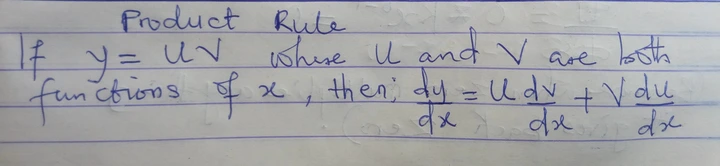 Product Rule
If y = UV where U and V are both
functions of x, then; dy/dx = U dv/dx + V du/dx